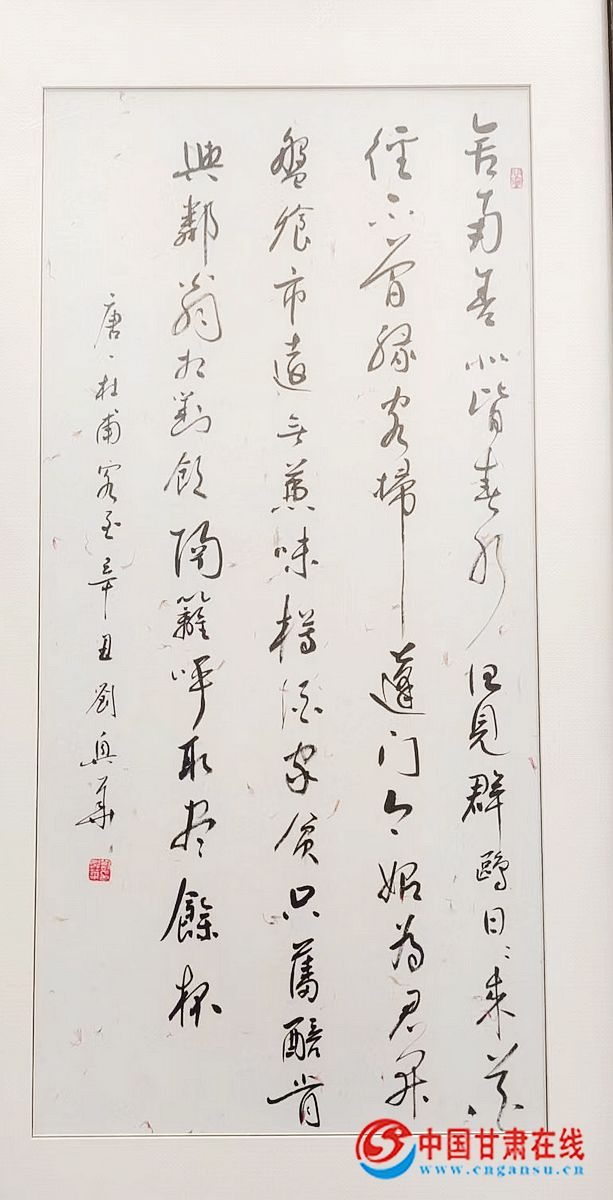 舍南舍北皆春水但見群鷗日〻来花
徑不曾緣客掃蓬门今始為君开
盤飧市遠无兼味樽酒家貧只舊醅肯
與鄰翁相對飲隔籬呼取尽餘杯
唐、杜甫客至辛丑劉華
中国甘肃在线
www.cngansu.cn